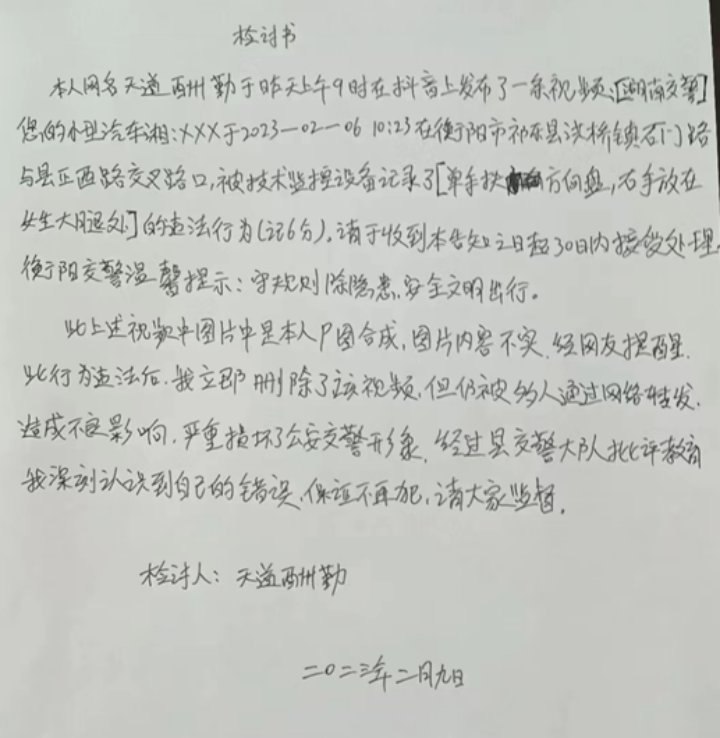 检讨书
本人网名天道酬勤于昨天上午9时在抖音上发布了一条视频:[湖南交警]
您的小型汽车湘:XXX于2023—02—06 10:23在衡阳市祁东县洪桥镇石门路
与县正西路交叉路口,被技术监控设备记录了[单手扶方向盘,右手放在
女生大腿处]的违法行为(记6分)。请于收到本告知之日起30日内接受处理。
衡阳交警温馨提示:守规则除隐患,安全文明出行。
此上述视频中图片中是本人P图合成,图片内容不实,经网友提醒,
此行为违法后,我立即删除了该视频,但仍被多人通过网络转发,
造成不良影响,严重损坏了公安交警形象,经过县交警大队批评教育
我深刻认识到自己的错误,保证不再犯,请大家监督。
检讨人:天道酬勤
二〇二三年二月九日